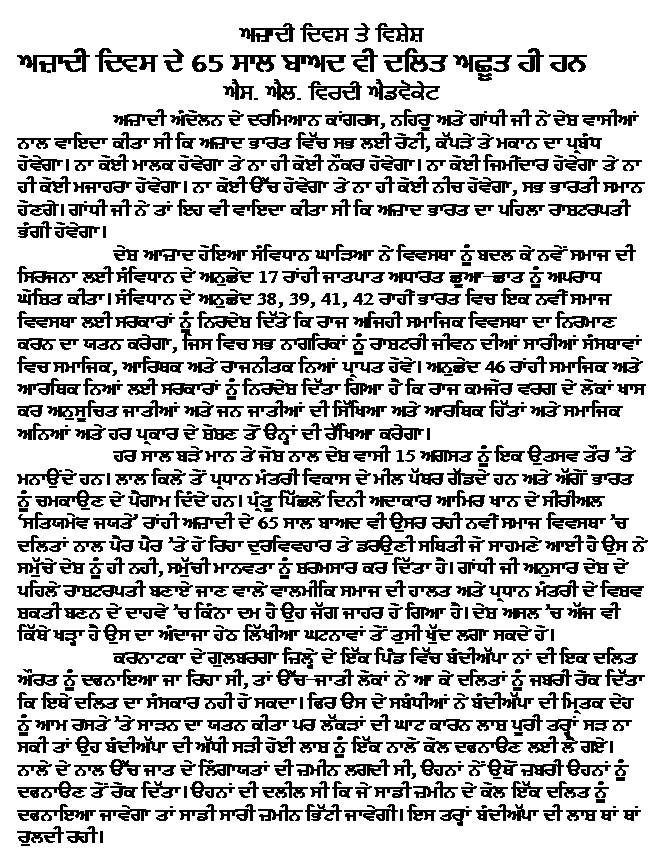 ਅਜ਼ਾਦੀ ਦਿਵਸ ਤੇ ਵਿਸ਼ੇਸ਼
ਅਜ਼ਾਦੀ ਦਿਵਸ ਦੇ 65 ਸਾਲ ਬਾਅਦ ਵੀ ਦਲਿਤ ਅਛੂਤ ਹੀ ਹਨ
ਐਸ. ਐਲ. ਵਿਰਦੀ ਐਡਵੋਕੇਟ
ਅਜ਼ਾਦੀ ਅੰਦੋਲਨ ਦੇ ਦਰਮਿਆਨ ਕਾਂਗਰਸ, ਨਹਿਰੂ ਅਤੇ ਗਾਂਧੀ ਜੀ ਨੇ ਦੇਸ਼ ਵਾਸੀਆਂ
ਨਾਲ ਵਾਇਦਾ ਕੀਤਾ ਸੀ ਕਿ ਅਜ਼ਾਦ ਭਾਰਤ ਵਿੱਚ ਸਭ ਲਈ ਰੋਟੀ, ਕੱਪੜੇ ਤੇ ਮਕਾਨ ਦਾ ਪ੍ਰਬੰਧ
ਹੋਵੇਗਾ। ਨਾ ਕੋਈ ਮਾਲਕ ਹੋਵੇਗਾ ਤੇ ਨਾ ਹੀ ਕੋਈ ਨੌਕਰ ਹੋਵੇਗਾ। ਨਾ ਕੋਈ ਜਿਮੀਂਦਾਰ ਹੋਵੇਗਾ ਤੇ ਨਾ
ਹੀ ਕੋਈ ਮਜਾਹਰਾ ਹੋਵੇਗਾ। ਨਾ ਕੋਈ ਉੱਚ ਹੋਵੇਗਾ ਤੇ ਨਾ ਹੀ ਕੋਈ ਨੀਚ ਹੋਵੇਗਾ, ਸਭ ਭਾਰਤੀ ਸਮਾਨ
ਹੋਣਗੇ। ਗਾਂਧੀ ਜੀ ਨੇ ਤਾਂ ਇਹ ਵੀ ਵਾਇਦਾ ਕੀਤਾ ਸੀ ਕਿ ਅਜ਼ਾਦ ਭਾਰਤ ਦਾ ਪਹਿਲਾ ਰਾਸ਼ਟਰਪਤੀ
ਭੰਗੀ ਹੋਵੇਗਾ।
ਦੇਸ਼ ਆਜ਼ਾਦ ਹੋਇਆ ਸੰਵਿਧਾਨ ਘਾੜਿਆ ਨੇ ਵਿਵਸਥਾ ਨੂੰ ਬਦਲ ਕੇ ਨਵੇਂ ਸਮਾਜ ਦੀ
ਸਿਰਜਨਾ ਲਈ ਸੰਵਿਧਾਨ ਦੇ ਅਨੁਛੇਦ 17 ਰਾਂਹੀ ਜਾਤਪਾਤ ਅਧਾਰਤ ਛੂਆ-ਛਾਤ ਨੂੰ ਅਪਰਾਧ
ਘੋਸ਼ਿਤ ਕੀਤਾ। ਸੰਵਿਧਾਨ ਦੇ ਅਨੁਛੇਦ 38, 39, 41, 42 ਰਾਹੀਂ ਭਾਰਤ ਵਿਚ ਇਕ ਨਵੀਂ ਸਮਾਜ
ਵਿਵਸਥਾ ਲਈ ਸਰਕਾਰਾਂ ਨੂੰ ਨਿਰਦੇਸ਼ ਦਿੱਤੇ ਕਿ ਰਾਜ ਅਜਿਹੀ ਸਮਾਜਿਕ ਵਿਵਸਥਾ ਦਾ ਨਿਰਮਾਣ
ਕਰਨ ਦਾ ਯਤਨ ਕਰੇਗਾ, ਜਿਸ ਵਿਚ ਸਭ ਨਾਗਰਿਕਾਂ ਨੂੰ ਰਾਸ਼ਟਰੀ ਜੀਵਨ ਦੀਆਂ ਸਾਰੀਆਂ ਸੰਸਥਾਵਾਂ
ਵਿਚ ਸਮਾਜਿਕ, ਆਰਿਥਕ ਅਤੇ ਰਾਜਨੀਤਕ ਨਿਆਂ ਪ੍ਰਾਪਤ ਹੋਵੇ। ਅਨੁਛੇਦ 46 ਰਾਂਹੀ ਸਮਾਜਿਕ ਅਤੇ
ਆਰਥਿਕ ਨਿਆਂ ਲਈ ਸਰਕਾਰਾਂ ਨੂੰ ਨਿਰਦੇਸ਼ ਦਿੱਤਾ ਗਿਆ ਹੈ ਕਿ ਰਾਜ ਕਮਜੋਰ ਵਰਗ ਦੇ ਲੋਕਾਂ ਖਾਸ
ਕਰ ਅਨੁਸੂਚਿਤ ਜਾਤੀਆਂ ਅਤੇ ਜਨ ਜਾਤੀਆਂ ਦੀ ਸਿੱਖਿਆ ਅਤੇ ਆਰਥਿਕ ਹਿੱਤਾਂ ਅਤੇ ਸਮਾਜਿਕ
ਅਨਿਆਂ ਅਤੇ ਹਰ ਪ੍ਰਕਾਰ ਦੇ ਸ਼ੋਸ਼ਣ ਤੋਂ ਉਨ੍ਹਾਂ ਦੀ ਰੱਖਿਆ ਕਰੇਗਾ।
ਹਰ ਸਾਲ ਬੜੇ ਮਾਨ ਤੇ ਜੋਸ਼ ਨਾਲ ਦੇਸ਼ ਵਾਸੀ 15 ਅਗਸਤ ਨੂੰ ਇਕ ਉਤਸਵ ਤੌਰ 'ਤੇ
ਮਨਾਉਂਦੇ ਹਨ। ਲਾਲ ਕਿਲੇ ਤੋਂ ਪ੍ਰਧਾਨ ਮੰਤਰੀ ਵਿਕਾਸ ਦੇ ਮੀਲ ਪੱਥਰ ਗੱਡਦੇ ਹਨ ਅਤੇ ਅੱਗੋਂ ਭਾਰਤ
ਨੂੰ ਚਮਕਾਉਣ ਦੇ ਪੈਗਾਮ ਦਿੰਦੇ ਹਨ। ਪ੍ਰੰਤੂ ਪਿੱਛਲੇ ਦਿਨੀ ਅਦਾਕਾਰ ਆਮਿਰ ਖਾਨ ਦੇ ਸੀਰੀਅਲ
'ਸਤਿਯਮੇਵ ਜਯਤੇ' ਰਾਂਹੀ ਅਜ਼ਾਦੀ ਦੇ 65 ਸਾਲ ਬਾਅਦ ਵੀ ਉਸਰ ਰਹੀ ਨਵੀਂ ਸਮਾਜ ਵਿਵਸਥਾ 'ਚ
ਦਲਿਤਾਂ ਨਾਲ ਪੈਰ ਪੈਰ 'ਤੇ ਹੋ ਰਿਹਾ ਦੁਰਵਿਵਹਾਰ ਤੇ ਡਰਾਉਣੀ ਸਥਿਤੀ ਜੋ ਸਾਹਮਣੇ ਆਈ ਹੈ ਉਸ ਨੇ
ਸਮੁੱਚੇ ਦੇਸ਼ ਨੂੰ ਹੀ ਨਹੀ, ਸਮੁੱਚੀ ਮਾਨਵਤਾ ਨੂੰ ਸ਼ਰਮਸਾਰ ਕਰ ਦਿੱਤਾ ਹੈ। ਗਾਂਧੀ ਜੀ ਅਨੁਸਾਰ ਦੇਸ਼ ਦੇ
ਪਹਿਲੇ ਰਾਸ਼ਟਰਪਤੀ ਬਣਾਏ ਜਾਣ ਵਾਲੇ ਵਾਲਮੀਕਿ ਸਮਾਜ ਦੀ ਹਾਲਤ ਅਤੇ ਪ੍ਰਧਾਨ ਮੰਤਰੀ ਦੇ ਵਿਸ਼ਵ
ਸ਼ਕਤੀ ਬਣਨ ਦੇ ਦਾਹਵੇ 'ਚ ਕਿੰਨਾ ਦਮ ਹੈ ਉਹ ਜੱਗ ਜਾਹਰ ਹੋ ਗਿਆ ਹੈ। ਦੇਸ਼ ਅਸਲ 'ਚ ਅੱਜ ਵੀ
ਕਿੱਥੇ ਖੜ੍ਹਾ ਹੈ ਉਸ ਦਾ ਅੰਦਾਜਾ ਹੇਠ ਲਿੱਖੀਆ ਘਟਨਾਵਾਂ ਤੋਂ ਤੁਸੀ ਖੁੱਦ ਲਗਾ ਸਕਦੇ ਹੋ।
ਕਰਨਾਟਕਾ ਦੇ ਗੁਲਬਰਗਾ ਜ਼ਿਲ੍ਹੇ ਦੇ ਇੱਕ ਪਿੰਡ ਵਿੱਚ ਬੰਦੀਅੱਪਾ ਨਾਂ ਦੀ ਇਕ ਦਲਿਤ
ਔਰਤ ਨੂੰ ਦਫਨਾਇਆ ਜਾ ਰਿਹਾ ਸੀ, ਤਾਂ ਉੱਚ-ਜਾਤੀ ਲੋਕਾਂ ਨੇ ਆ ਕੇ ਦਲਿਤਾਂ ਨੂੰ ਜਬਰੀ ਰੋਕ ਦਿੱਤਾ
ਕਿ ਇਥੇ ਦਲਿਤ ਦਾ ਸੰਸਕਾਰ ਨਹੀ ਹੋ ਸਕਦਾ। ਫਿਰ ਉਸ ਦੇ ਸਬੰਧੀਆਂ ਨੇ ਬੰਦੀਅੱਪਾ ਦੀ ਮ੍ਰਿਤਕ ਦੇਹ
ਨੂੰ ਆਮ ਰਸਤੇ 'ਤੇ ਸਾੜਨ ਦਾ ਯਤਨ ਕੀਤਾ ਪਰ ਲੱਕੜਾਂ ਦੀ ਘਾਟ ਕਾਰਨ ਲਾਸ਼ ਪੂਰੀ ਤਰ੍ਹਾਂ ਸੜ ਨਾ
ਸਕੀ ਤਾਂ ਉਹ ਬੰਦੀਅੱਪਾ ਦੀ ਅੱਧੀ ਸੜੀ ਹੋਈ ਲਾਸ਼ ਨੂੰ ਇੱਕ ਨਾਲੇ ਕੋਲ ਦਫਨਾਉਣ ਲਈ ਲੈ ਗਏ।
ਨਾਲੇ ਦੇ ਨਾਲ ਉੱਚ ਜਾਤ ਦੇ ਲਿੰਗਾਯਤਾਂ ਦੀ ਜ਼ਮੀਨ ਲਗਦੀ ਸੀ, ਉਹਨਾਂ ਨੇ ਉਥੋਂ ਜ਼ਬਰੀ ਉਹਨਾਂ ਨੂੰ
ਦਫਨਾਉਣ ਤੋਂ ਰੋਕ ਦਿੱਤਾ। ਉਹਨਾਂ ਦੀ ਦਲੀਲ ਸੀ ਕਿ ਜੇ ਸਾਡੀ ਜ਼ਮੀਨ ਦੇ ਕੋਲ ਇੱਕ ਦਲਿਤ ਨੂੰ
ਦਫਨਾਇਆ ਜਾਵੇਗਾ ਤਾਂ ਸਾਡੀ ਸਾਰੀ ਜ਼ਮੀਨ ਭਿੱਟੀ ਜਾਵੇਗੀ। ਇਸ ਤਰ੍ਹਾਂ ਬੰਦੀਅੱਪਾ ਦੀ ਲਾਸ਼ ਥਾਂ ਥਾਂ
ਰੁਲਦੀ ਰਹੀ।